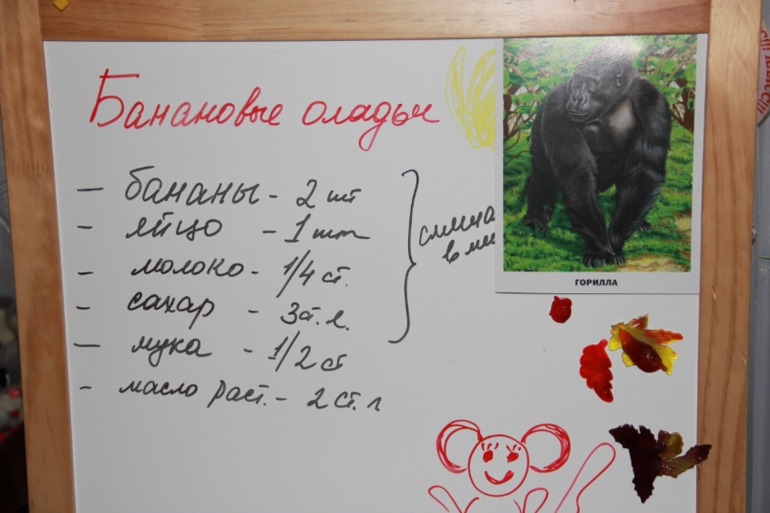 Банановые оладьи
– бананы - 2 шт
- яйцо - 1 шт
- молоко - 1/4 ст.
- сахар - 3 ст. л.
– мука - 1/2 ст
- масло раст. - 2 ст. л
в ми
ГОРИЛЛА